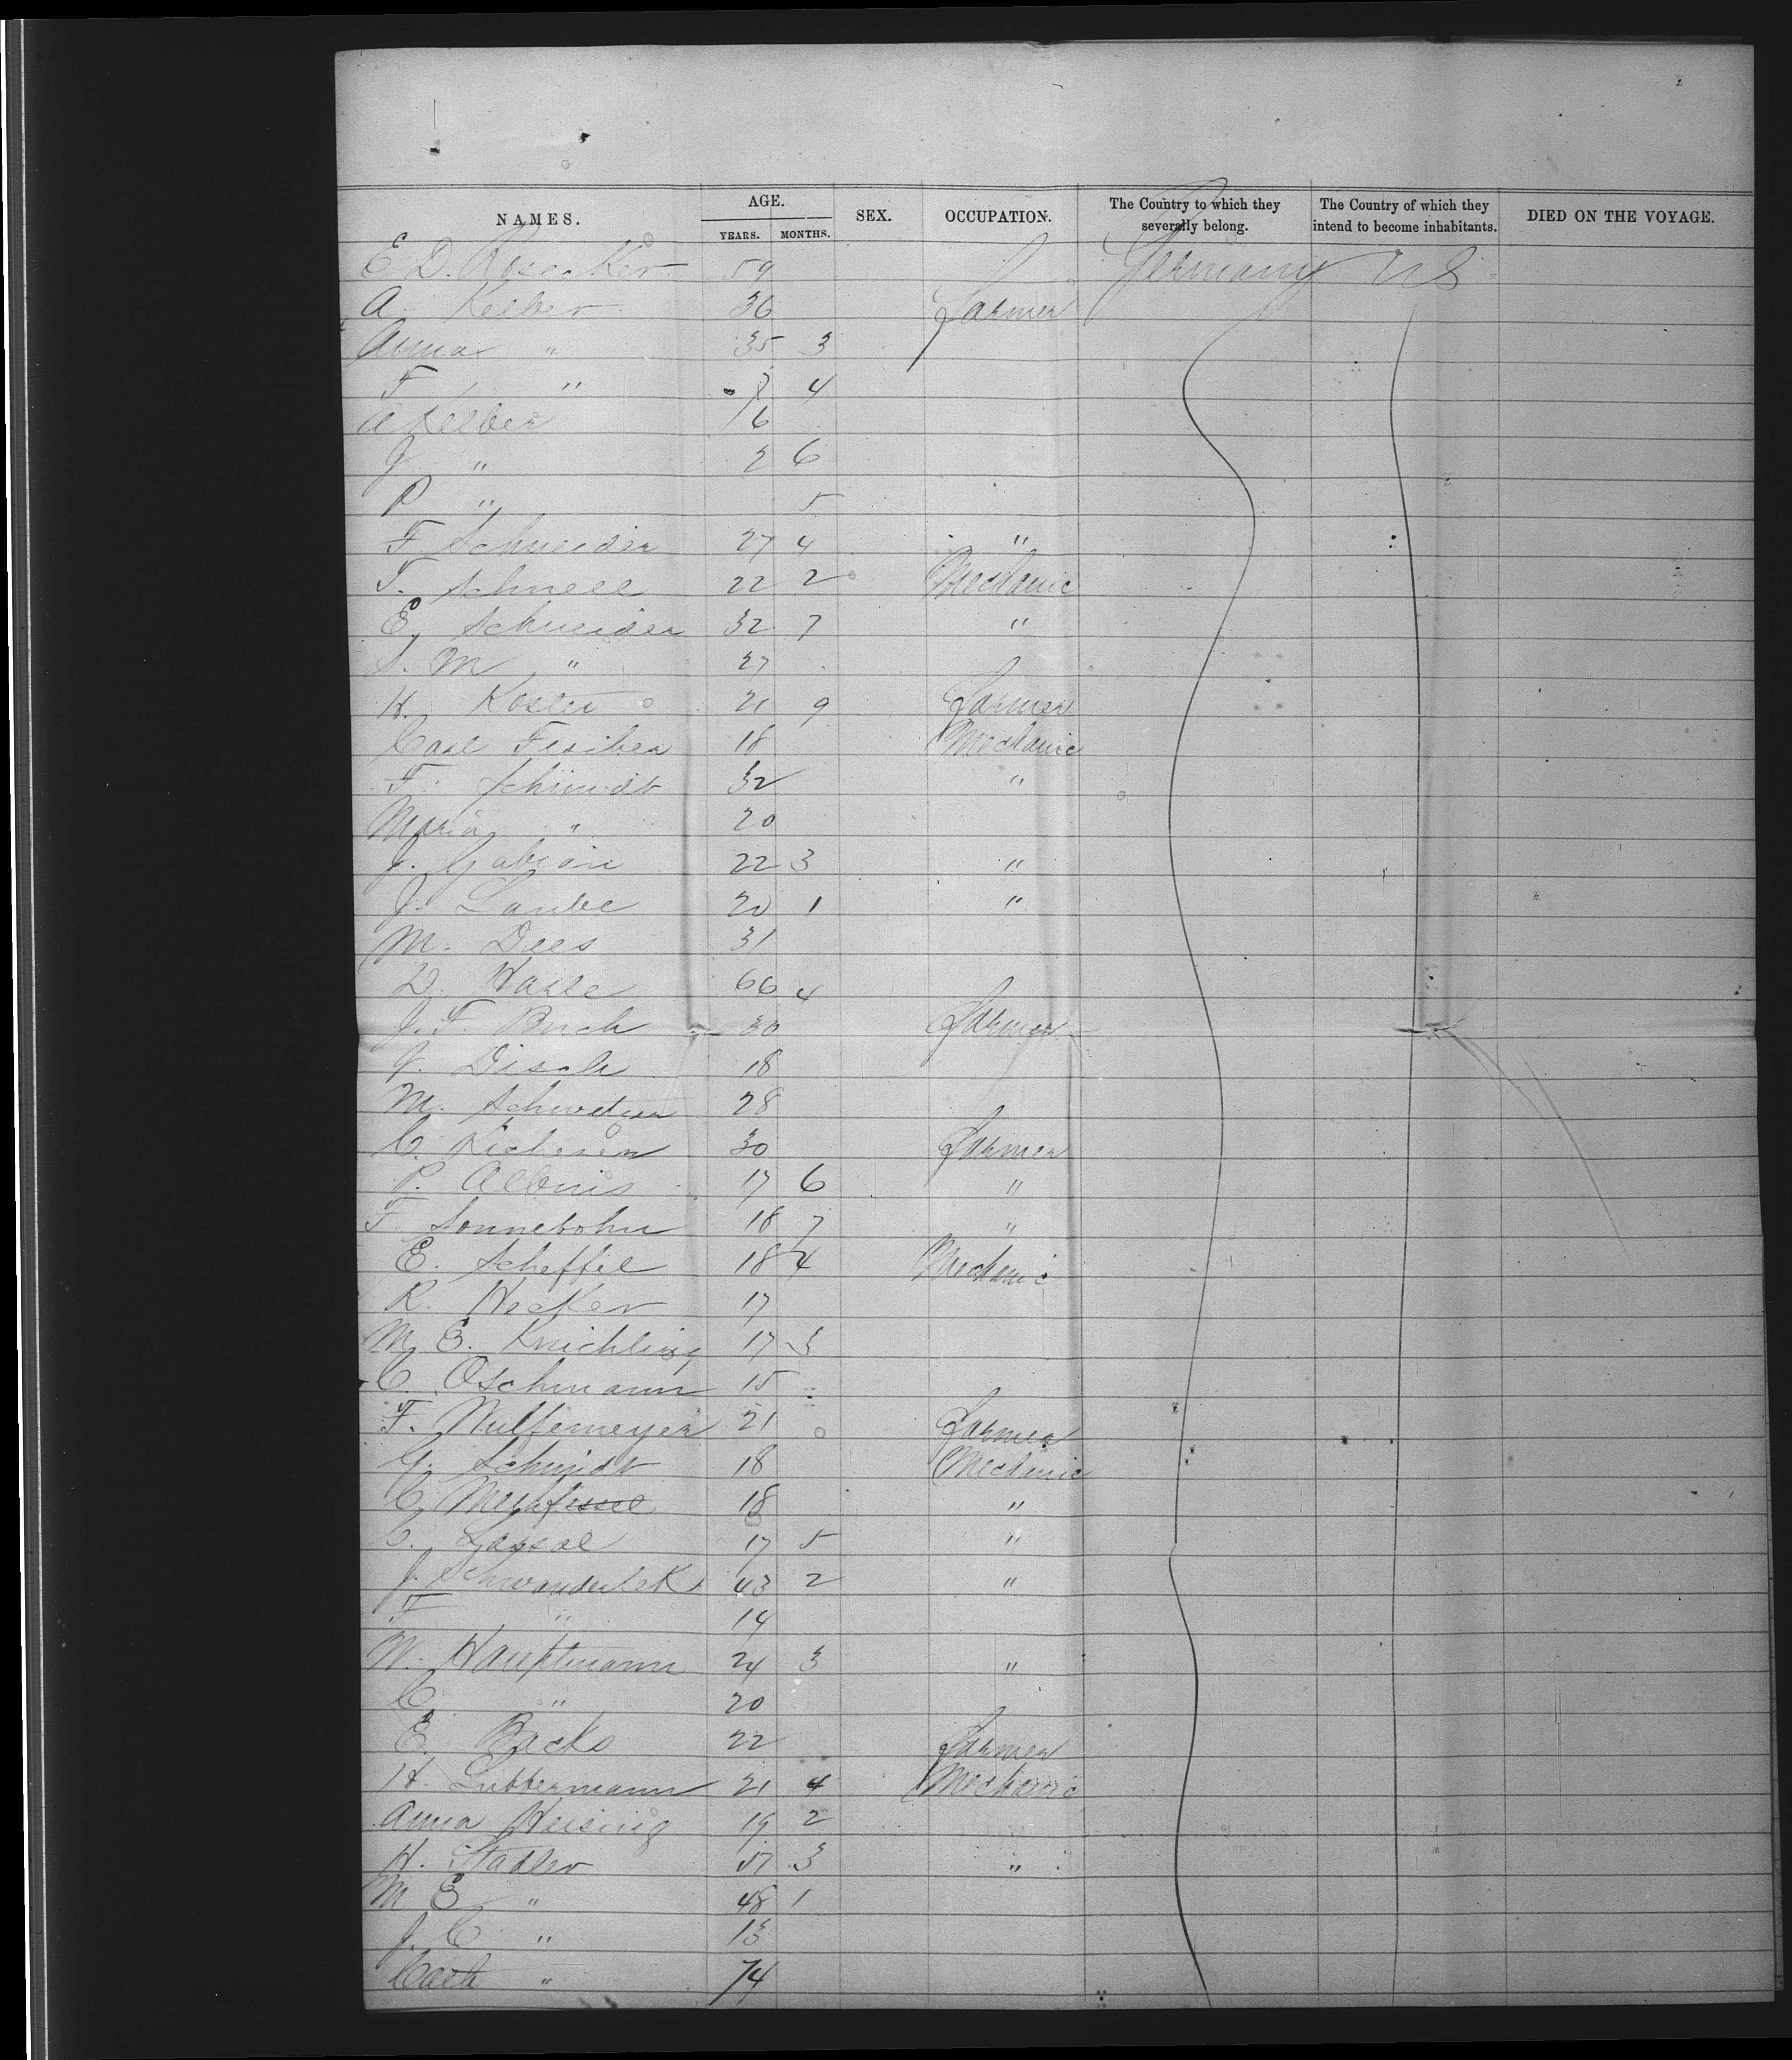 NAMES. AGE. YEARS. MONTHS. SEX. OCCUPATION. The Country to which they severally belong. The Country of which they intend to become inhabitants. DIED ON THE VOYAGE.
E D. Rosecker 59 Germany US
A. Kelber 36 Farmer
Anna " 35 3
F " 4
A Kelber 6
J " 2 6
P " 5
F Schneider 27 4 "
T. Schnell 22 2 Mechanic
E. Schneider 32 7 "
S. M " 27
H. Koster 21 9 Farmer
Carl Fischer 18 Mechanic
F. Schmidt 32 "
Maria " 20
J. Gabrain 22 3 "
J. Laube 20 1 "
M. Dees 31
D. Halle 66 4
J. F. Buch 30 Farmer
J. Disch 18
M. 28
C. 30 Farmer
P. Albinis 17 6 "
F. Sonnebohn 18 7 "
E. Scheffel 18 4 Mechanic
R. Hecker 17
M. E. Knichling 17 3
C. Oschmann 15
F. Wulfemeyer 21 Farmer
G. Schmidt 18 Mechanic
C. 18 "
C. 17 5 "
J. 43 2 "
F " 14
W. Hauptmann 24 3 "
C. " 20
E. Backs 22 Farmer
H. Lubbermann 21 4 Mechanic
Anna Heising 19 2
H. Stadler 57 3 "
M E " 48 1
J. C. " 13
" 74